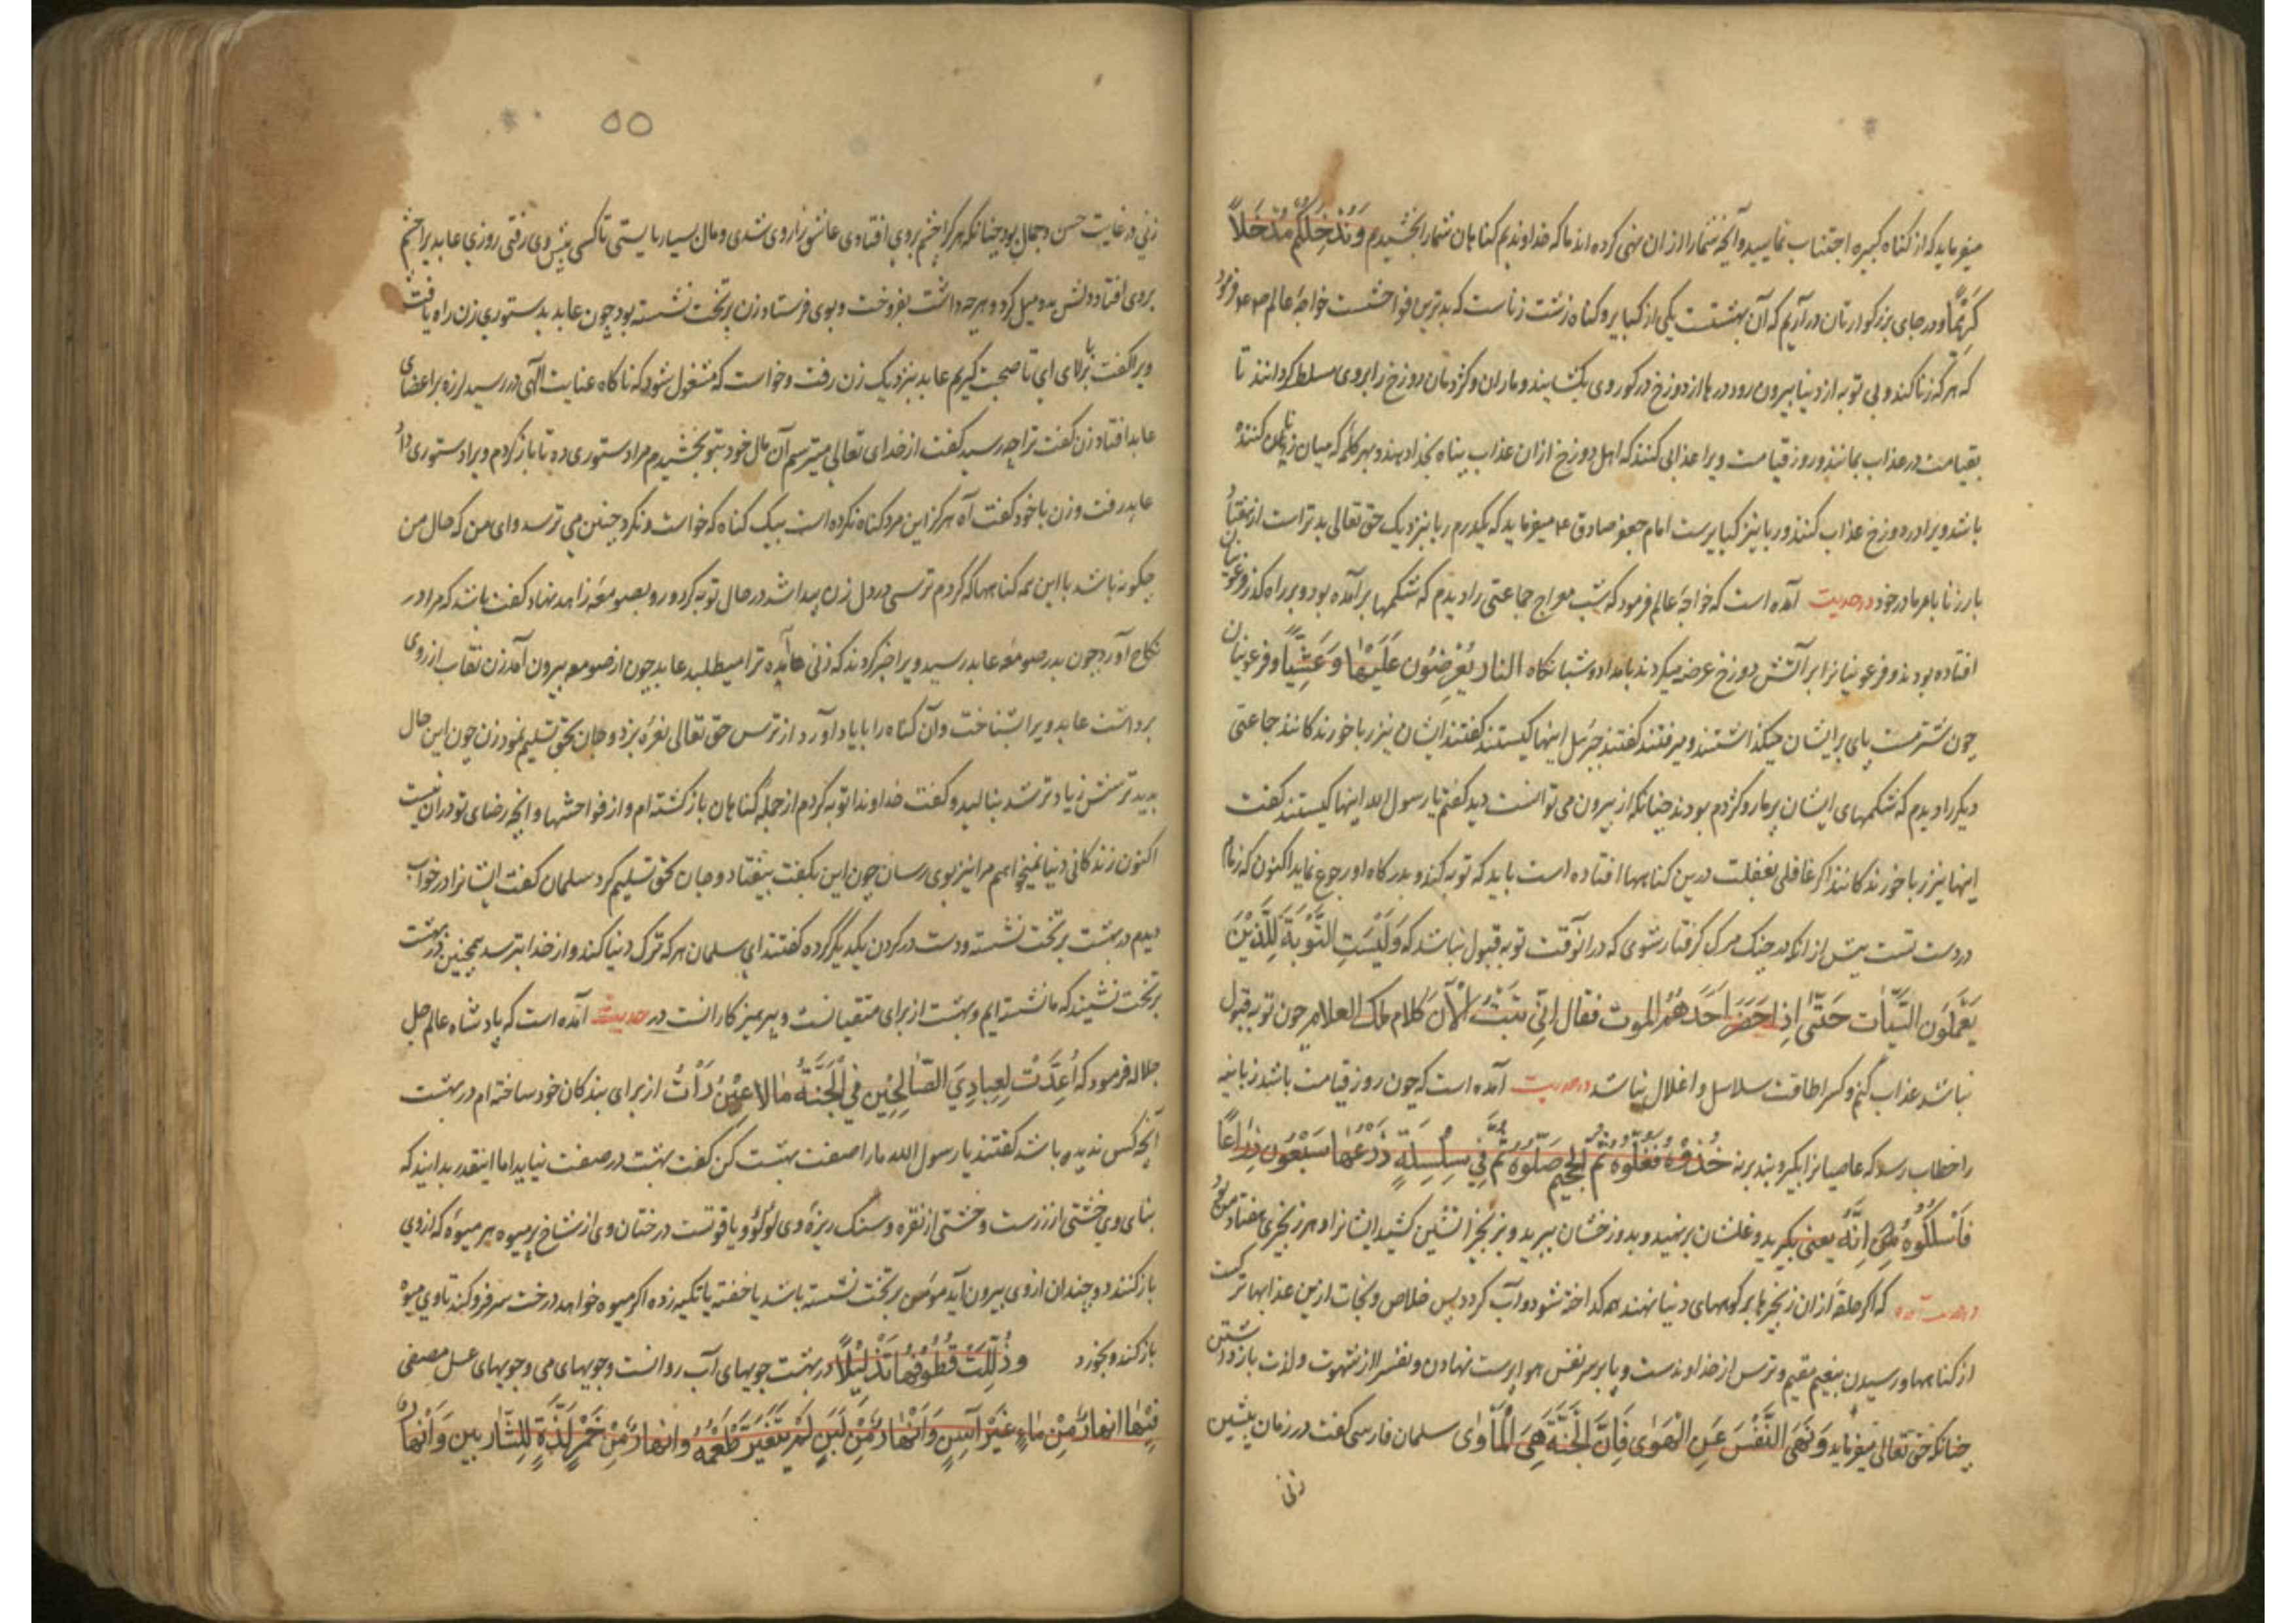 میفرماید که از کناه کبیره اجتناب نمایید و آنچه شما را از ان نهی کرده اند ما که خداوندیم کناهان شما را بخشیدیم وَنُدْخِلْكُمْ مُدْخَلاً
كَرِيْمًا و در جای بزرکوارتان درآریم که آن بهشتست یکی از کبایر و کناه زشت زناست که بدترین فواحشست خواجهٔ عالم ۴م فرمود
که هرکه زنا کند و بی توبه از دنیا بیرون رود درها از دوزخ در کور وی بکشایند و ماران و کژدمان دوزخ را بر وی مسلط کردانند تا
بقیامت در عذاب بماند و روز قیامت ویرا عذابی کنند که اهل دوزخ ازان عذاب پناه بخدا دهند و بهر کلمه که میان زنا کننده
باشد ویرا در دوزخ عذاب کنند و ربا نیز کبایرست امام جعفر صادق ۴م میفرماید که یکدرم ربا بنزدیک حق تعالی بدتر است از هفتاد
بار زنا با مادر خود در حدیث آمده است که خواجهٔ عالم فرمود که شب معراج جماعتی را دیدم که شکمها بر آمده بود و بر راه کذر فرعونیان
افتاده بودند و فرعونیانرا بر آتش دوزخ عرضه میکردند بامداد و شبانکاه النار يُعْرَضُوْن عَلَيْهَا وَعَشِيّاً و فرعونیان
چون شتر مست پای بر ایشان میکذاشتند و میرفتند کفتند جبرئیل اینها کیستند کفتند ایشان نیز ربا خورندکانند جماعتی
دیکر را دیدم که شکمهای ایشان پر مار و کژدم بودند چنانکه از بیرون می توانست دید کفتم یا رسول الله اینها کیستند کفت
اینها نیز ربا خورندکانند اکر غافلی بغفلت درین کناهها افتاده است باید که توبه کند و بدرکاه او رجوع نماید اکنون که زمام
در دست تست پیش از انکه در چنک مرک کرفتار شوی که در انوقت توبه قبول نباشد که وَلَيْسَتِ التَّوْبَةُ لِلَّذِيْنَ
يَعْمَلُوْن السَّيِّآت حَتّٰى اِذا حَضَرَ اَحَدَهُمُ الموت فقال اِنِّي تُبْتُ الْاٰنَ کلام ملک العلام چون توبه قبول
نباشد عذاب کنم و کس را طاقت سلاسل و اغلال نباشد در حدیث آمده است که چون روز قیامت باشد زبانیه
را خطاب رسد که عاصیانرا بکیرید خُذُوْهُ فَغُلُّوْهُ ثُمَّ الْجَحِيْمَ صَلُّوْهُ ثُمَّ فِي سِلْسِلَةٍ ذَرْعُهَا سَبْعُوْن ذِرَاعًا
فَاسْلُكُوْهُ اِنَّهُ یعنی بکیرید و غلشان برنهید و بدوزخشان ببرید و بزنجیر آتشین کشید ایشانرا و هر زنجیری هفتاد
در حدیث آمده که اکر حلقهٔ از ان زنجیرها بر کوههای دنیا نهند همه کداخته شود و آب کردد پس خلاص و نجات ازین عذابها
از کناهها و رسیدن بنعیم مقیم و ترس از خداوندست و پا بر سر نفس هوا پرست نهادن و نفس را از شهوت و لذت باز داشتن
چنانکه حق تعالی میفرماید وَنَهَى النَّفْسَ عَنِ الْهَوٰى فَاِنَّ الْجَنَّةَ هِيَ الْمَأْوٰى سلمان فارسی کفت در زمان پیشین
زنی
۵۵
زنی در غایت حسن و جمال بود چنانکه هر کرا چشم بروی افتادی عاشق زار وی شدی و مال بسیار بایستی تا کسی پیش وی رفتی روزی عابدیرا چشم
بروی افتاد دلش بدو میل کرد و هرچه داشت بفروخت و بوی فرستاد زن بر تخت نشسته بود چون عابد بدستوری زن راه یافت
ویرا کفت بالای آی تا صحبت کنیم عابد بنزدیک زن رفت و خواست که مشغول شود که ناکاه عنایت الهی در رسید لرزه بر اعضای
عابد افتاد زن کفت ترا چه رسید کفت از خدای تعالی میترسم آن مال خود بتو بخشیدم مرا دستوری ده تا باز کردم ویرا دستوری داد
عابد رفت و زن با خود کفت آه هرکز این مرد کناه نکرده است بیک کناه که خواست و نکرد چنین می ترسد وای من که حال من
چکونه باشد با این همه کناهها که کردم ترسی در دل زن پیدا شد در حال توبه کرد و رو بصومعهٔ زاهد نهاد کفت باشد که مرا در
نکاح آورد چون بدر صومعهٔ عابد رسید ویرا خبر کردند که زنی آمده ترا میطلبد عابد چون از صومعه بیرون آمد زن نقاب از روی
برداشت عابد ویرا بشناخت و آن کناه را با یاد آورد از ترس حق تعالی نعرهٔ بزد و جان بحق تسلیم نمود زن چون این حال
بدید ترسش زیادتر شد بنالید و کفت خداوندا توبه کردم از جمله کناهان باز کشته ام و از فواحشها و انچه رضای تو در ان نیست
اکنون زندکانی دنیا نمیخواهم مرا نیز بوی رسان چون این بکفت بیفتاد و جان بحق تسلیم کرد سلمان کفت ایشانرا در خواب
دیدم در بهشت بر تخت نشسته و دست در کردن یکدیکر کرده کفتند ای سلمان هر که ترک دنیا کند و از خدا بترسد همچنین در بهشت
بر تخت نشیند که ما نشسته ایم و بهشت از برای متقیانست و پرهیزکارانست در حدیث آمده است که پادشاه عالم جل
جلاله فرمود که اُعِدَّتْ لِعِبَادِيَ الصَّالِحِيْن فِي الْجَنَّةِ مٰالا عَيْنٌ رَأَتْ از برای بندکان خود ساخته ام در بهشت
آنچه کس ندیده باشد کفتند یا رسول الله ما را صفت بهشت کن کفت بهشت در صفت نیاید اما اینقدر بدانید که
بنای وی خشتی از زرست و خشتی از نقره و سنک ریزهٔ وی لؤلؤ و یاقوتست درختان وی از شاخ پر میوه هر میوهٔ که از وی
باز کنند دو چندان از وی بیرون آید مؤمن بر تخت نشسته باشد یا خفته یا تکیه زده اکر میوه خواهد درخت سر فرو کند تا وی میوه
باز کند و بخورد وَذُلِّلَتْ قُطُوْفُهَا تَذْلِيْلًا در بهشت جویهای آب روانست و جویهای می و جویهای عسل مصفی
فِيْهٰا انهارٌ مِنْ مٰاءٍ غَيْرِ آسِنٍ وَاَنْهٰارٌ مِنْ لَبَنٍ لَمْ يَتَغَيَّرْ طَعْمُهُ وانهارٌ مِنْ خَمْرٍ لَذَّةٍ لِلشَّارِبين وَاَنْهٰارٌ